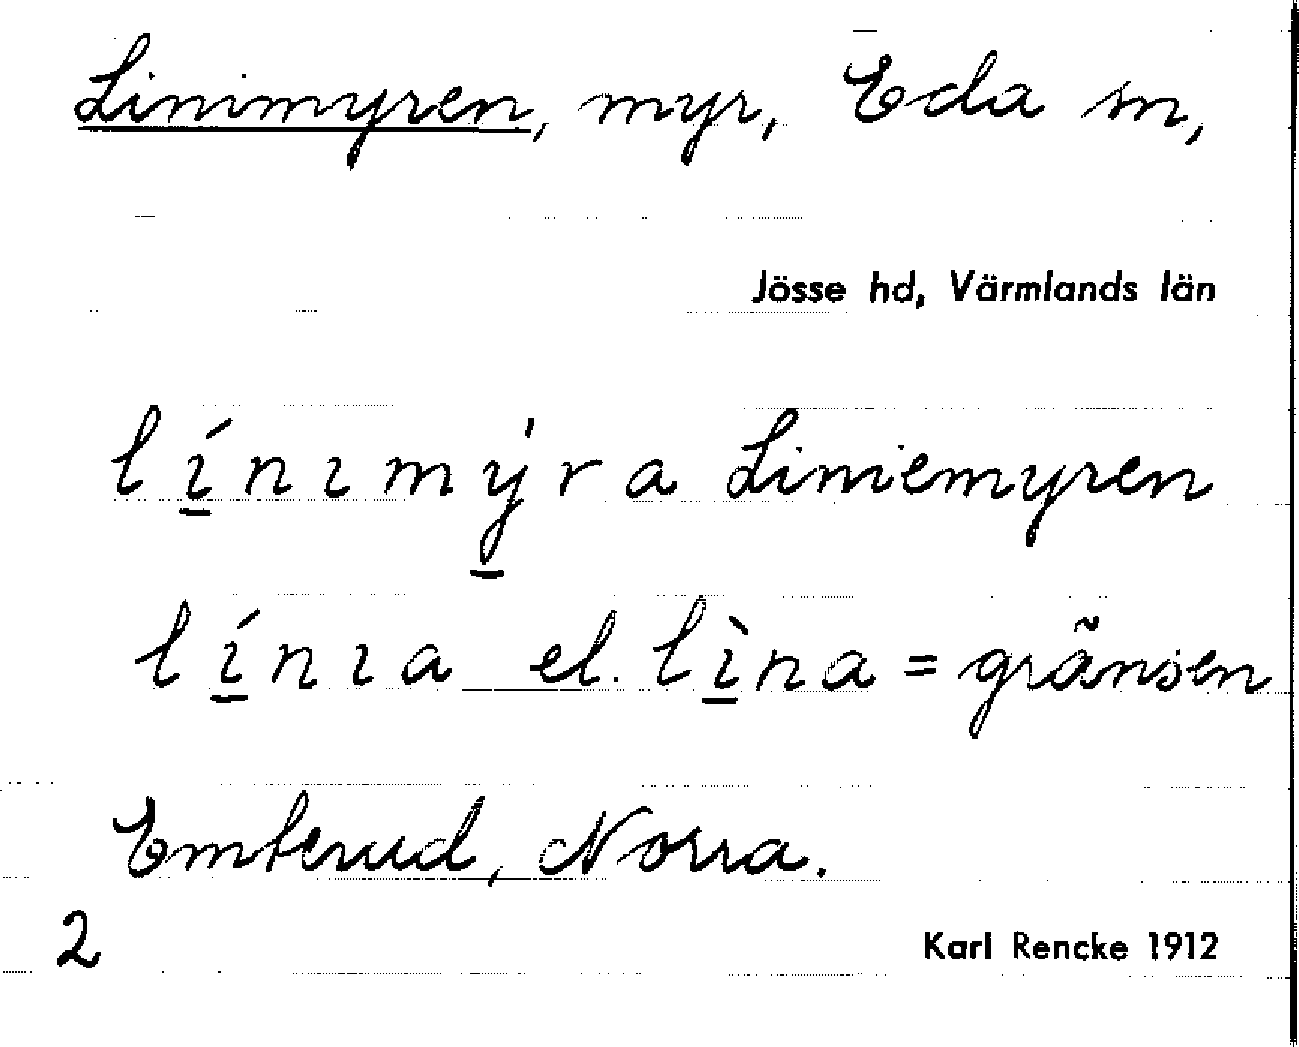 Linimyren, myr, Eda sn,
Jösse hd, Värmlands län
lı̱́nımý̱ra Liniemyren
lı̱́nıa el. lı̱̀na = gränsen
Emterud, Norra.
2
Karl Rencke 1912